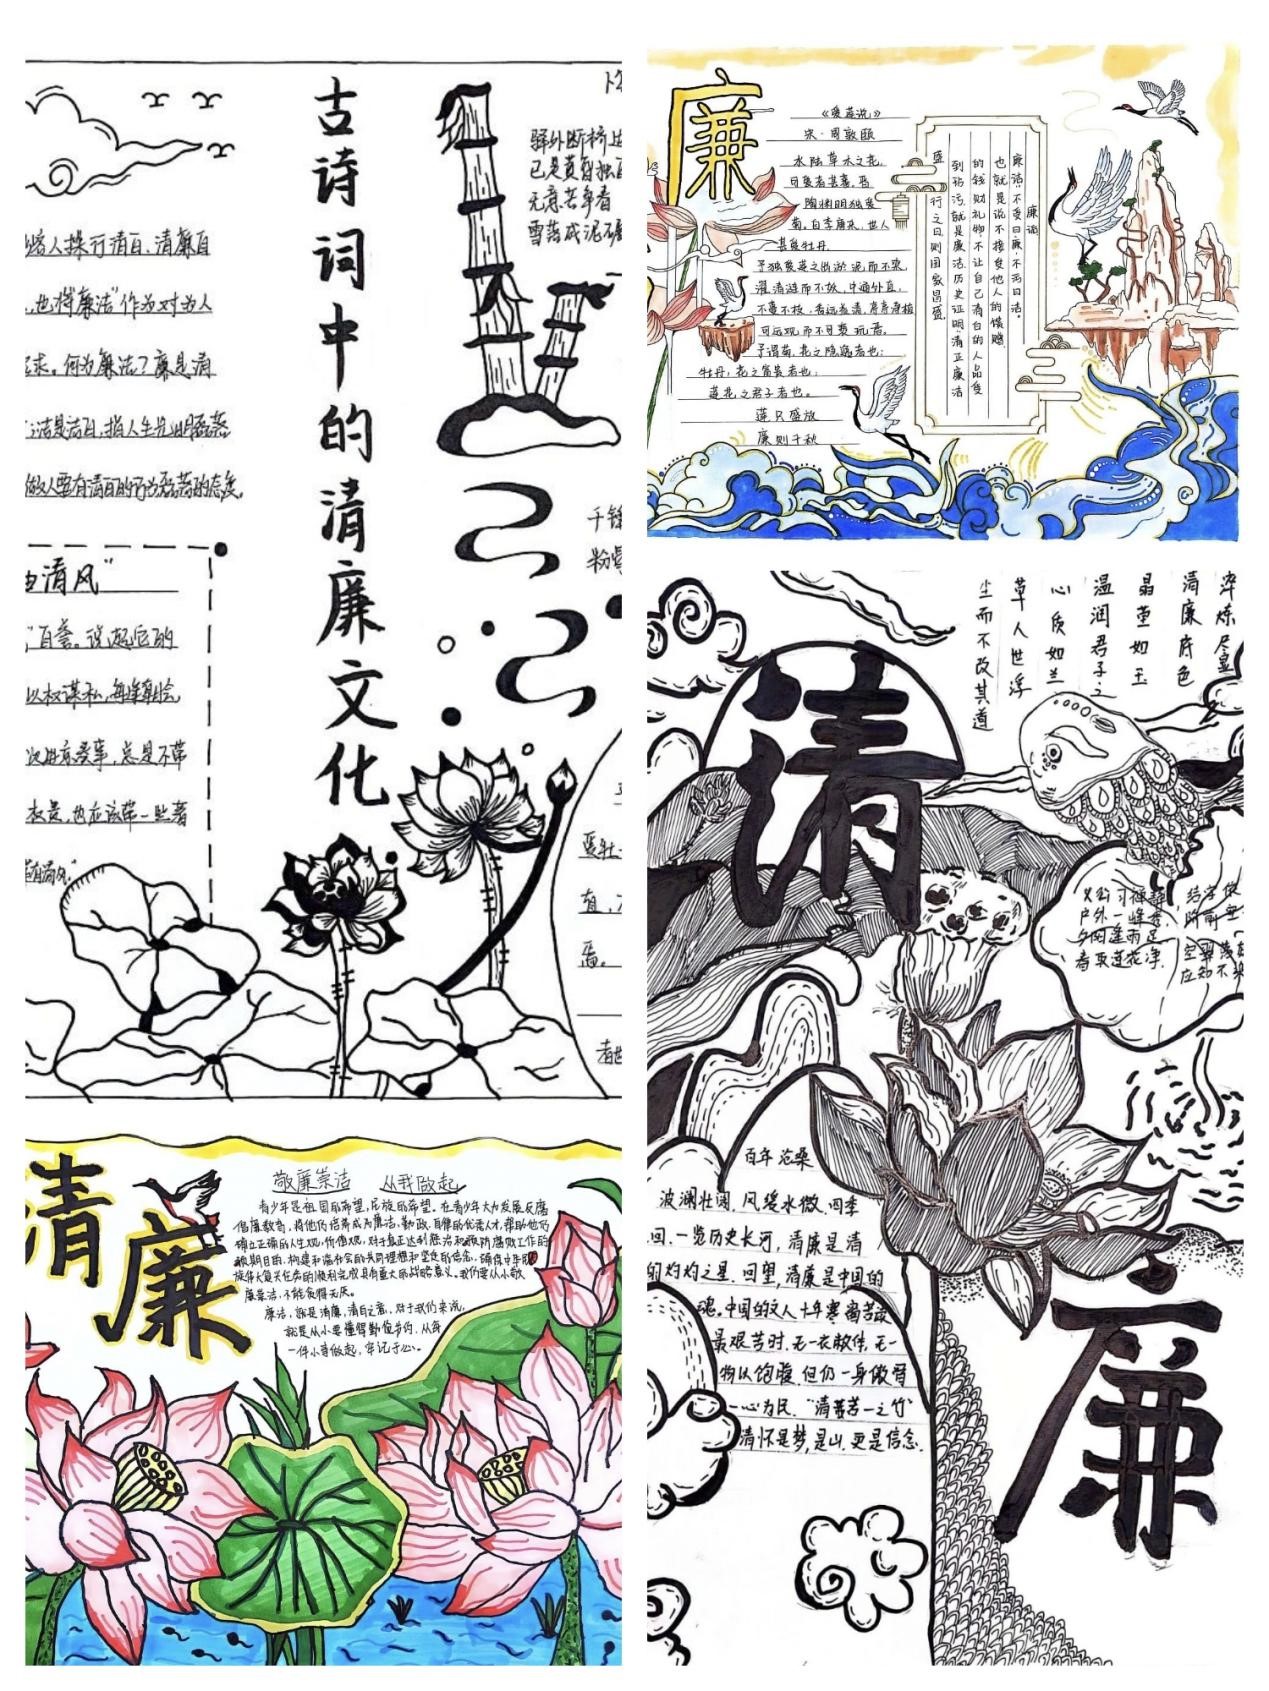 古诗词中的清廉文化
人操行清白、清廉自
也将“廉洁”作为对为人
求。何为廉洁？廉是清
洁是洁白，指人生光明磊落
做人要有清白的行为磊落的态度。
清风”
以权谋私，
事，总是不带
也应该带一些著
驿外断桥边
已是黄昏独自
无意苦争春
雪落成泥
千锋
粉
廉
《爱莲说》
宋·周敦颐
水陆草木之花，
可爱者甚蕃。晋
陶渊明独爱
菊。自李唐来，世人
甚爱牡丹。
予独爱莲之出淤泥而不染，
濯清涟而不妖，中通外直，
不蔓不枝，香远益清，亭亭净植
可远观而不可亵玩焉。
予谓菊，花之隐逸者也；
牡丹，花之富贵者也；
莲花之君子者也。
莲只盛放
廉则千秋
廉洁
廉洁：“不受曰廉，不污曰洁。
也就是说不接受他人的馈赠
的钱财礼物，不让自己清白的人品受
到玷污，就是廉洁，历史证明，清正廉洁
盛行之日，则国家昌盛。
清廉
敬廉崇洁 从我做起
青少年是祖国的希望，民族的希望。在青少年大力发展反腐
倡廉教育，将他们培养成为廉洁、勤政、自律的优秀人才，帮助他们
确立正确的人生观、价值观，对于真正达到惩治和预防腐败工作的
长期目的，构建和谐社会的共同理想和坚定的信念，确保中华民
族伟大复兴任务的顺利完成具有重大的战略意义。我们要从小敬
廉崇洁，不能贪得无厌。
廉洁，就是清廉，清白之意，对于我们来说，
就是从小要懂得勤俭节约，从每
一件小事做起，牢记于心。
清
廉
淬炼尽显
清廉底色
晶莹如玉
温润君子之
心质如兰
草人世浮
尘而不改其道
义公习禅静
户外一峰秀
夕阳连雨足
看取莲花净
结宇依
阶前
空翠落
应知不染
百年沧桑
波澜壮阔，风缓水微，四季
回，一览历史长河，清廉是清
的灼灼之星。回望，清廉是中国的
魂。中国的文人十年寒窗苦读
最艰苦时，无一衣敝体，无一
物以饱腹，但仍一身傲骨
一心为民，“清养苦一之竹”
清怀是梦，是山，更是信念。